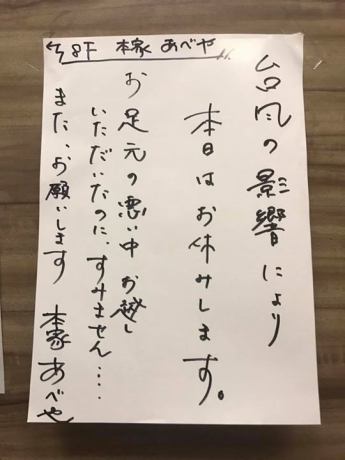 8F 本家 あべや
台風の影響により
本日はお休みします。
お足元の悪い中 お越し
いただいたのに、すみません‥‥
また、お願いします 本家 あべや